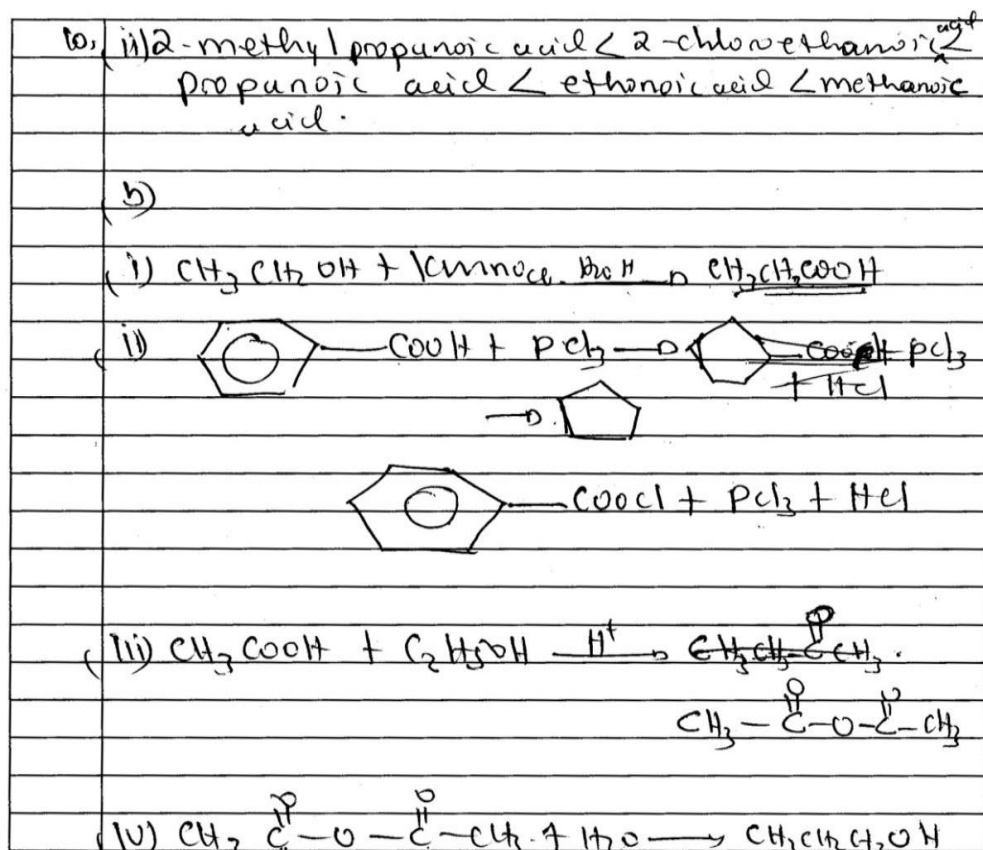 10, ii) 2-methyl propanoic acid < 2-chloroethanoic acid <
propanoic acid < ethonoic acid < methanoic
acid.
b)
i) CH3 CH2 OH + KMnO4 → CH3CH2COOH
ii) COOH + PCl3 → + PCl3
+ HCl
→
COOCl + PCl3 + HCl
iii) CH3 COOH + C2H5OH H+ → CH3CH2 C CH3.
O O
CH3 – C – O – C – CH3
O O
iv) CH3 C – O – C – CH3 + H2O → CH3CH2CH2OH